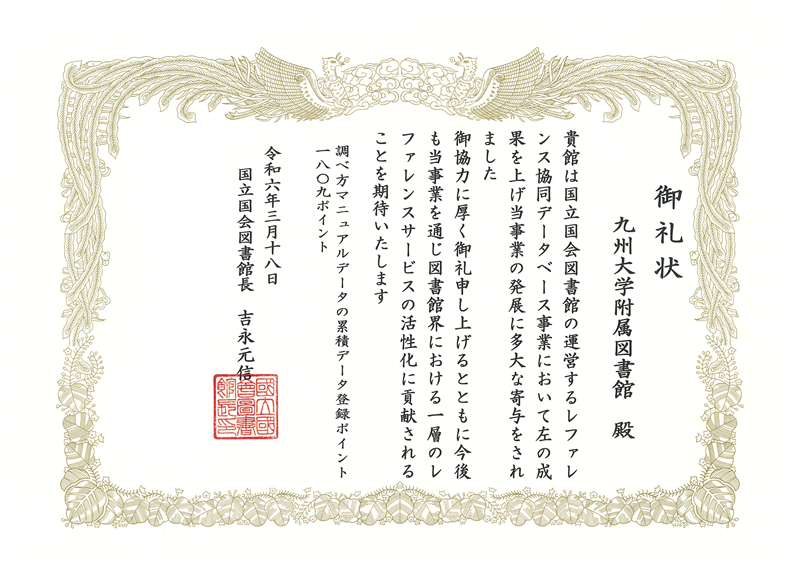 御礼状
九州大学附属図書館 殿
貴館は国立国会図書館の運営するレファレ
ンス協同データベース事業において左の成
果を上げ当事業の発展に多大な寄与をされ
ました
御協力に厚く御礼申し上げるとともに今後
も当事業を通じ図書館界における一層のレ
ファレンスサービスの活性化に貢献される
ことを期待いたします
調べ方マニュアルデータの累積データ登録ポイント
一八〇九ポイント
令和六年三月十八日
国立国会図書館長 吉永元信
國立國
會圖書
館長印